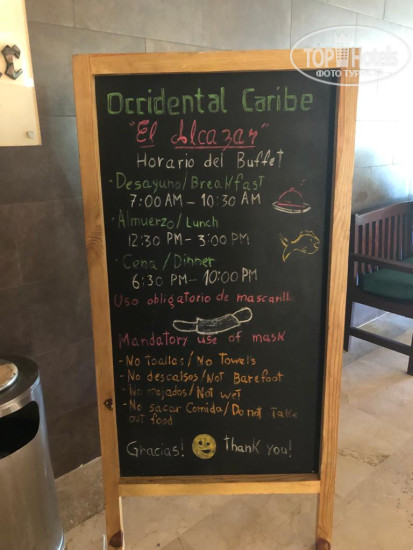 TopHotels
ФОТО ТУРИСТА
Occidental Caribe
"El Alcazar"
Horario del Buffet
· Desayuno/Breakfast
7:00 AM - 10:30 AM
· Almuerzo/Lunch
12:30 PM - 3:00 PM
· Cena/Dinner
6:30 PM - 10:00 PM
Uso obligatorio de mascarilla
Mandatory use of mask
- No toallas/No Towels
- No descalsos/Not Barefoot
- No mojados/Not wet
- No sacar Comida/Do not take
out food
Gracias! Thank you!